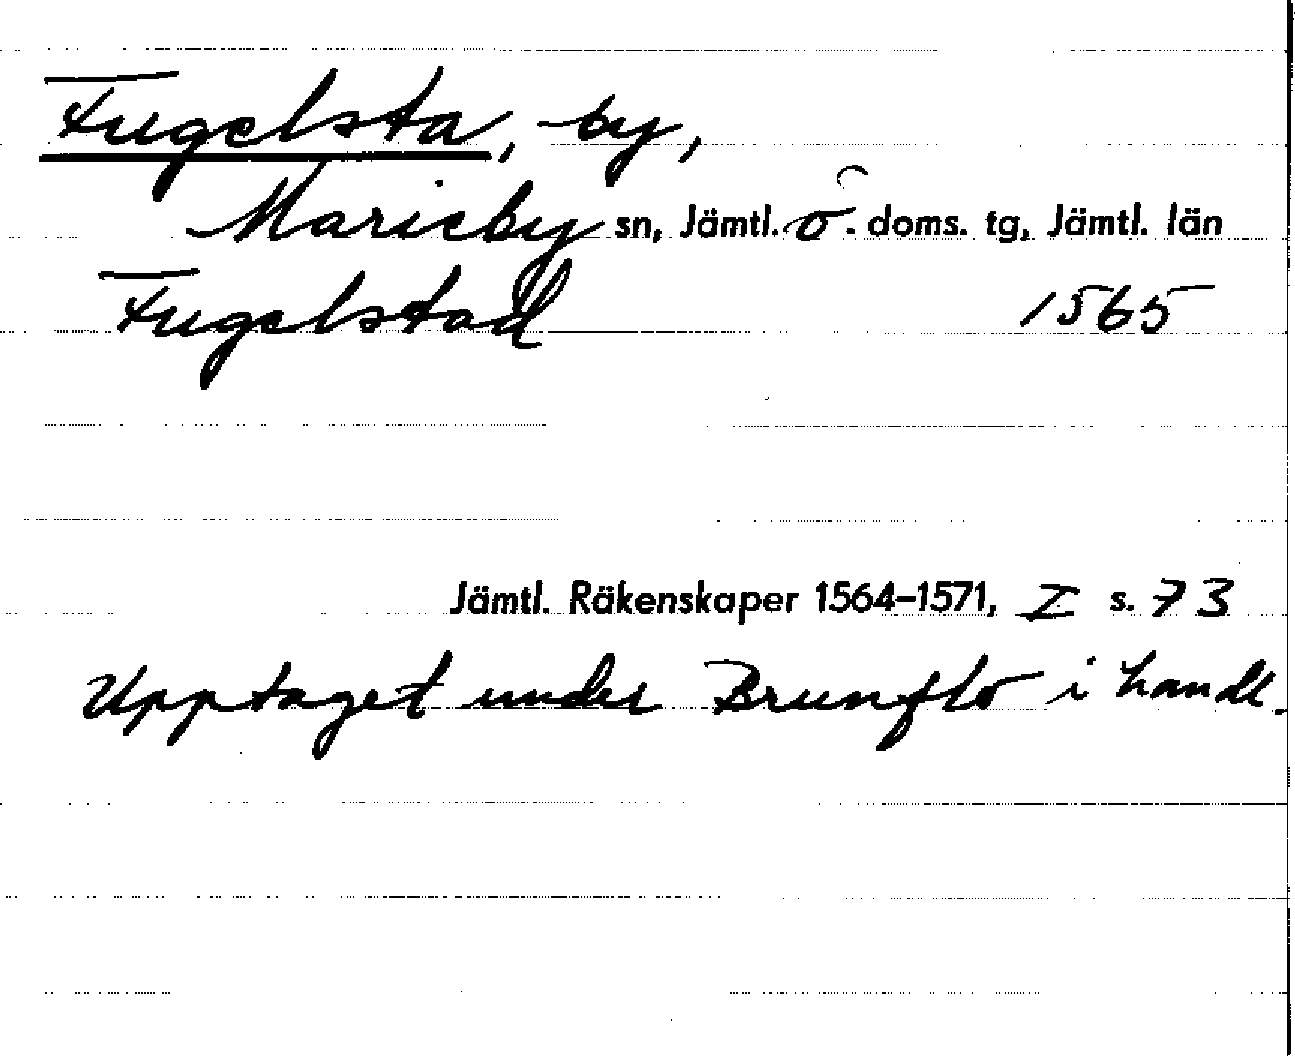 Fugelsta, by,
Marieby sn, Jämtl. ö. doms. tg, Jämtl. län
Fugelstad 1565
Jämtl. Räkenskaper 1564–1571, I s. 73
Upptaget under Brunflo i handl.